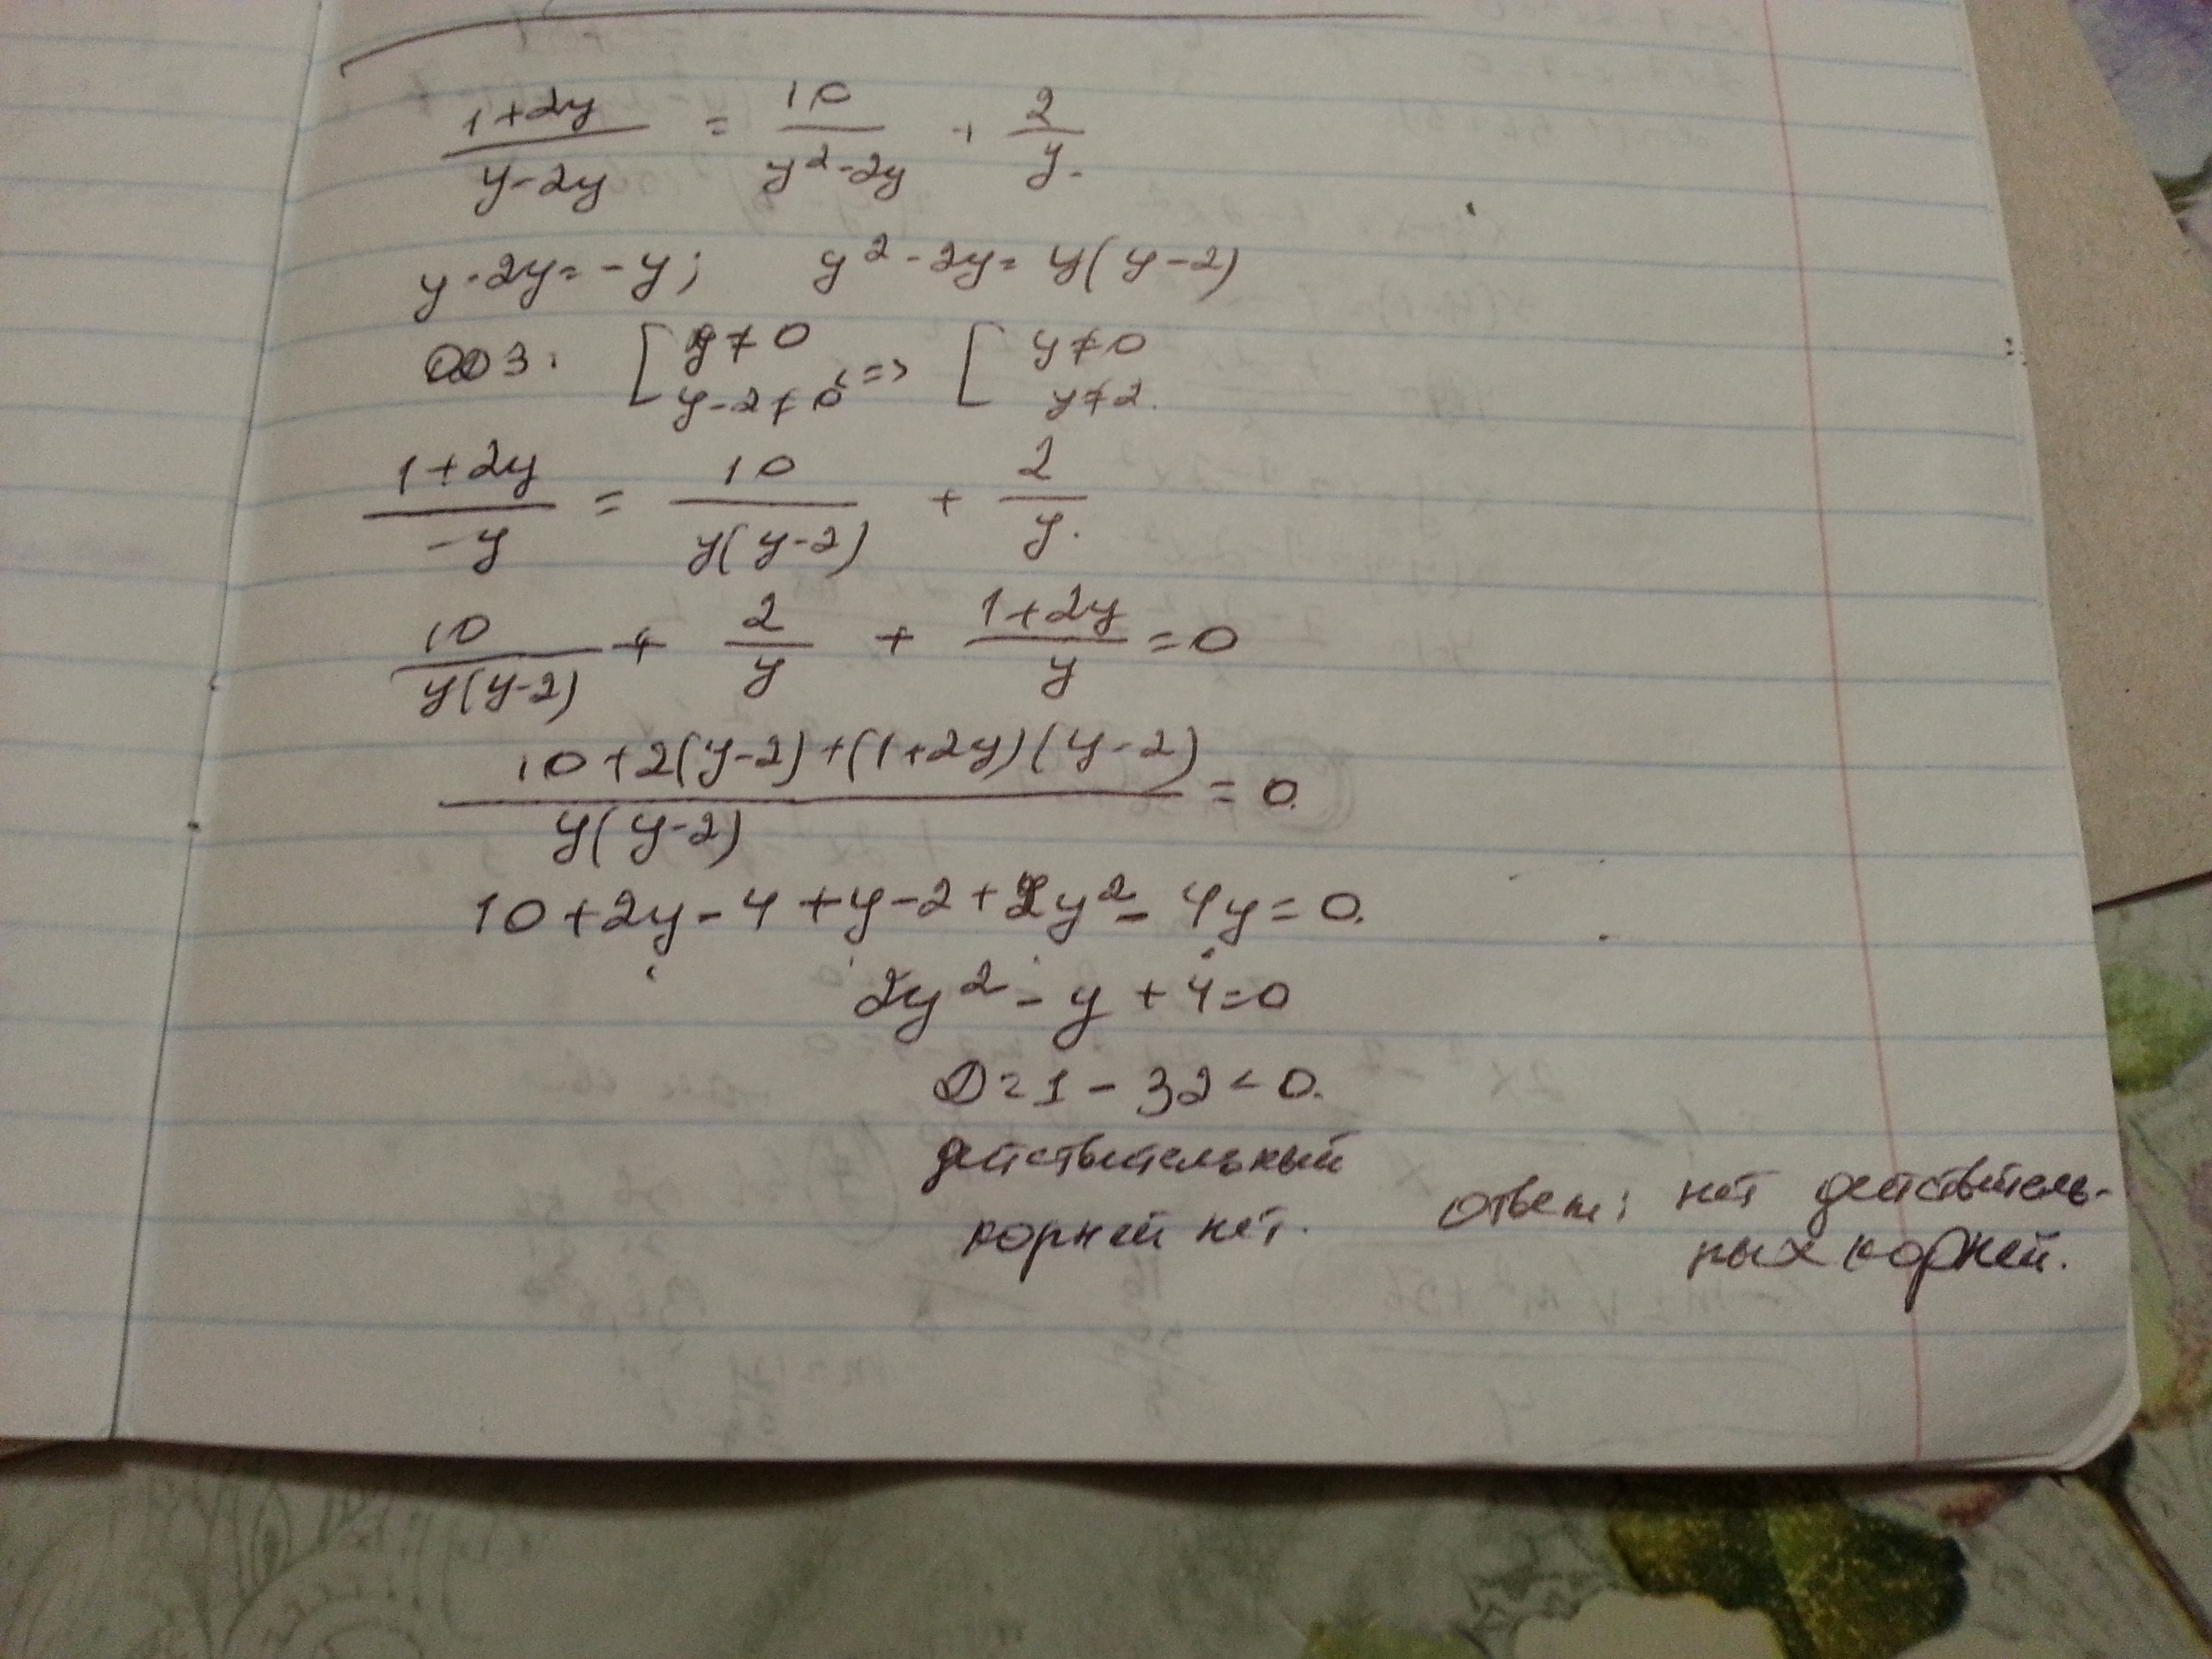 (1+2y)/(y-2y) = 10/(y²-2y) + 2/y.
y-2y=-y; y²-2y=y(y-2)
ОДЗ: [y≠0 y-2≠0 => [y≠0 y≠2.
(1+2y)/(-y) = 10/(y(y-2)) + 2/y.
10/(y(y-2)) + 2/y + (1+2y)/y =0
(10+2(y-2)+(1+2y)(y-2))/(y(y-2)) =0.
10+2y-4+y-2+2y²-4y=0.
2y²-y+4=0
D=1-32<0.
действительный
корней нет.
Ответ: нет действитель-
ных корней.